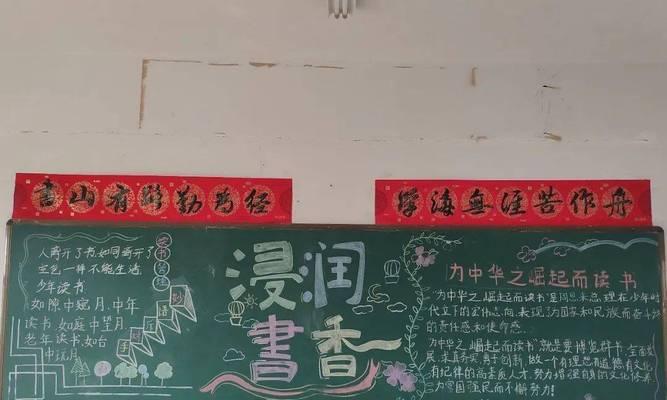 书山有路勤为径
学海无涯苦作舟
人离开了书,如同离开了
空气一样不能生活
少年读书
如隙中窥月,中年
读书如庭中望月
老年读书如台
中玩月
浸润
書香
为中华之崛起而读书
"为中华之崛起而读书"是周恩来总理在少年时
代立下的宏伟志向,表现了为国家和民族而奋斗
的责任感和使命感
"为中华之崛起而读书"就是要博览群书,全面发
展,求真务实,勇于创新,做一个有理想有道德有文化
有纪律的高素质人才,努力增强自身的文化修养
为富国强民而不懈努力!